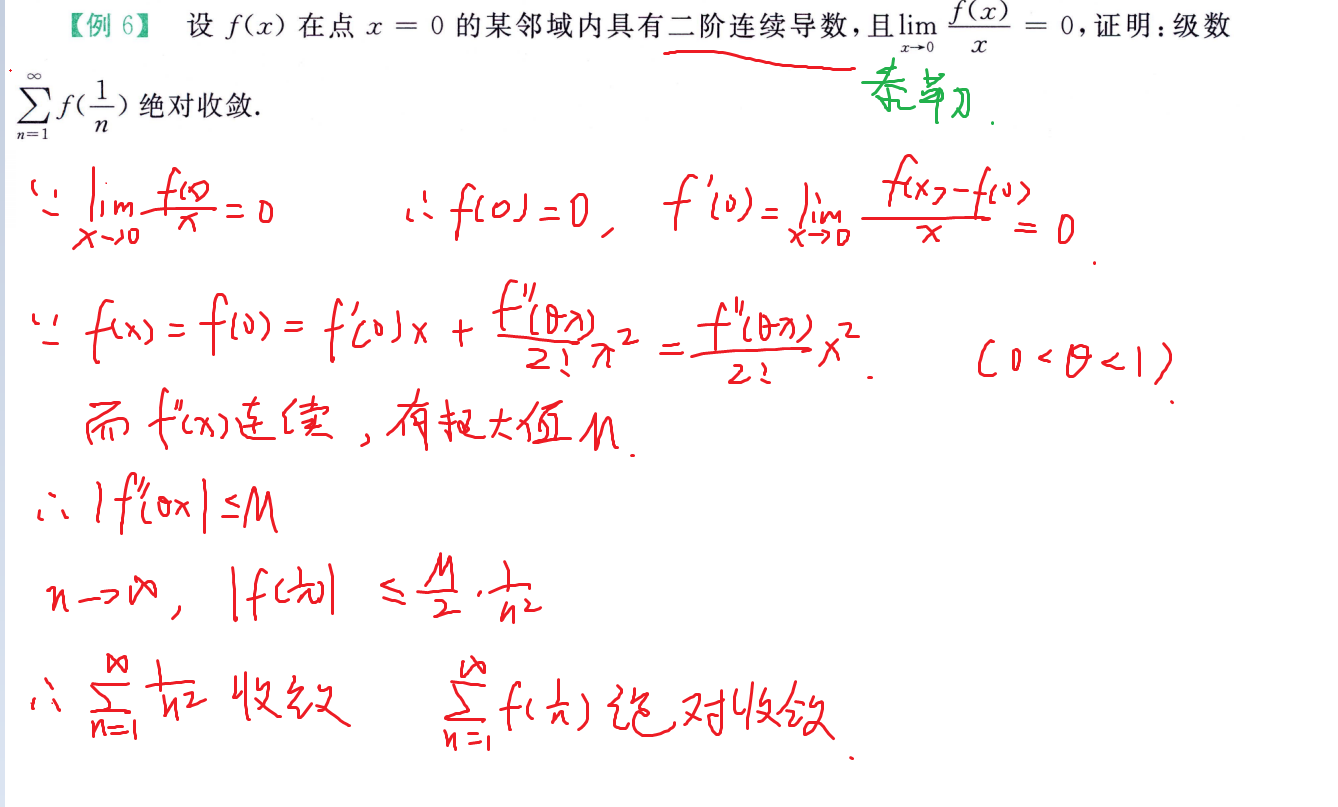 【例 6】 设 f(x) 在点 x = 0 的某邻域内具有二阶连续导数,且 lim_{x→0} f(x)/x = 0,证明:级数
∑_{n=1}^{∞} f(1/n) 绝对收敛.
泰勒.
∵ lim_{x→0} f(x)/x = 0 ∴ f(0) = 0, f'(0) = lim_{x→0} (f(x) - f(0))/x = 0.
∵ f(x) = f(0) = f'(0)x + f''(θx)/2! x² = f''(θx)/2! x². (0 < θ < 1).
而 f''(x) 连续,有极大值 M.
∴ |f''(θx| ≤ M
n→∞, |f(1/n)| ≤ M/2 · 1/n²
∴ ∑_{n=1}^{∞} 1/n² 收敛 ∑_{n=1}^{∞} f(1/n) 绝对收敛.